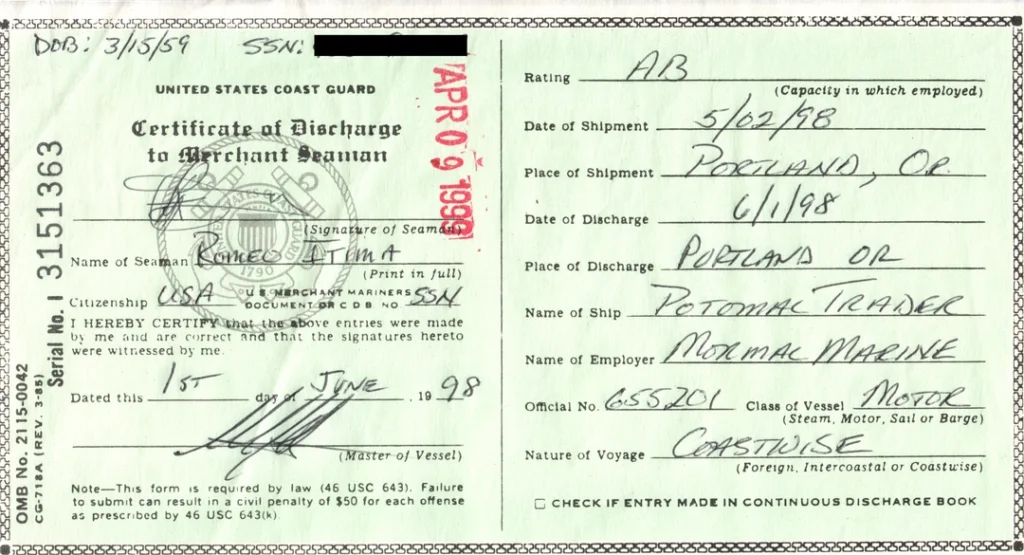 DOB: 3/15/59 SSN:
UNITED STATES COAST GUARD
Certificate of Discharge
to Merchant Seaman
APR 09 1999
(Signature of Seaman)
Name of Seaman ROMEO ITIMA
(Print in full)
Citizenship USA U.S. MERCHANT MARINERS DOCUMENT OR C D B NO SSN
I HEREBY CERTIFY that the above entries were made
by me and are correct and that the signatures hereto
were witnessed by me.
Dated this 1ST day of JUNE , 19 98
(Master of Vessel)
Note—This form is required by law (46 USC 643). Failure
to submit can result in a civil penalty of $50 for each offense
as prescribed by 46 USC 643(k).
Serial No. I 3151363
OMB No. 2115-0042
CG-718A (REV. 3-85)
1790
Rating AB
(Capacity in which employed)
Date of Shipment 5/02/98
Place of Shipment PORTLAND, OR.
Date of Discharge 6/1/98
Place of Discharge PORTLAND OR
Name of Ship POTOMAC TRADER
Name of Employer MORMAC MARINE
Official No. 655201 Class of Vessel MOTOR
(Steam, Motor, Sail or Barge)
Nature of Voyage COASTWISE
(Foreign, Intercoastal or Coastwise)
CHECK IF ENTRY MADE IN CONTINUOUS DISCHARGE BOOK